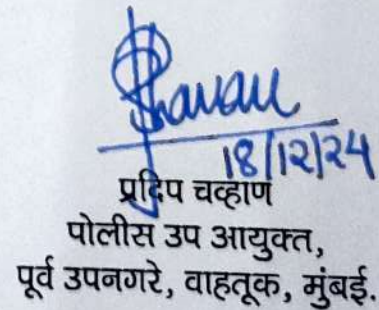 Pchavan
18/12/24
प्रदिप चव्हाण
पोलीस उप आयुक्त,
पूर्व उपनगरे, वाहतूक, मुंबई.